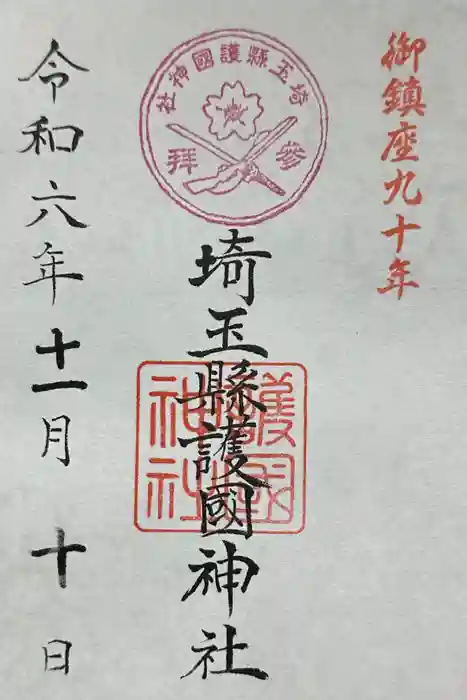 御鎮座九十年
埼玉縣護國神社
參拜
埼玉縣護國神社
護國
神社
令和六年十一月十日